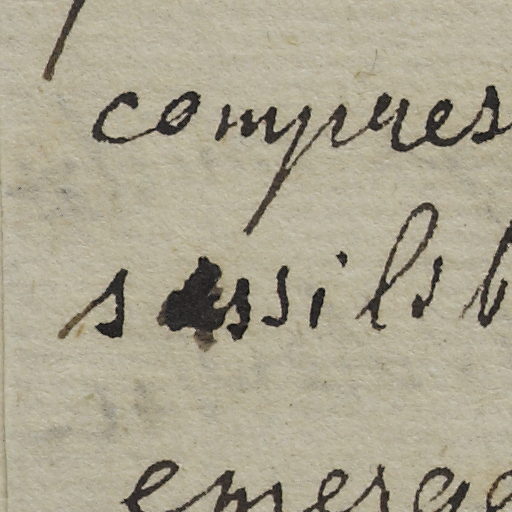 compres
sessils b
emerge